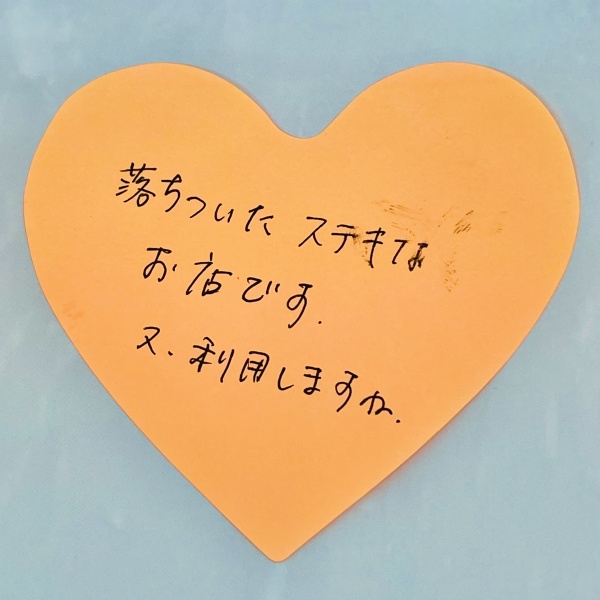 落ちついた ステキな
お店です.
又、利用しますね.